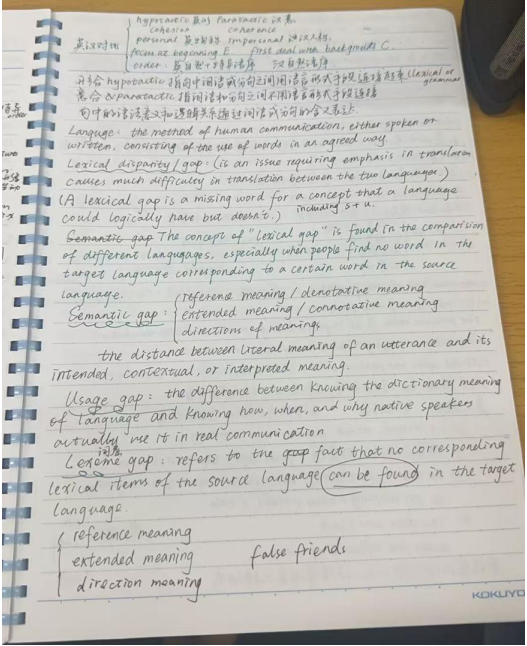 英汉对比
hypotactic 英形 Paratactic 汉意
cohesion coherence
personal impersonal
focus at beginning E first deal with backgrounds C
order: 英 汉自然语序
形合 hypotactic 指句中词语或分句之间用语言形式手段连接起来 (lexical or grammar
意合 paratactic 指词语和分句之间不用语言形式手段连接
句中的语法意义和逻辑关系通过词语或分句的含义表达.
Languge: the method of human communication, either spoken or
written, consisting of the use of words in an agreed way.
Lexical disparity / gap: (is an issue requiring emphasis in translation
causes much difficulty in translation between the two languages)
(A lexical gap is a missing word for a concept that a language
could logically have but doesn't.) including s + u.
Semantic gap The concept of "lexical gap" is found in the comparision
of different langugages, especially when people find no word in the
target language corresponding to a certain word in the source
language.
Semantic gap: reference meaning / denotative meaning
extended meaning / connotative meaning
directions of meanings
the distance between literal meaning of an utterance and its
intended, contextual, or interpreted meaning.
Usage gap: the difference between knowing the dictionary meaning
of language and knowing how, when, and why native speakers
actually use it in real communication
Lexeme gap: refers to the gap fact that no corresponding
lexical items of the source language can be found in the target
language.
reference meaning
extended meaning false friends
direction meaning
KOKUYO